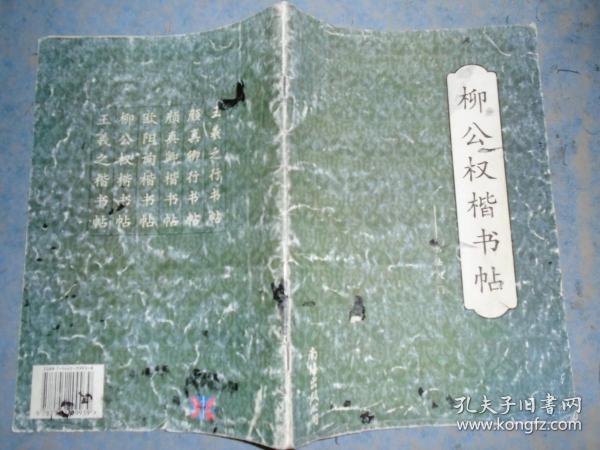 柳公权楷书帖
南海出版公司
王羲之行书帖
颜真卿行书帖
颜真卿楷书帖
欧阳询楷书帖
柳公权楷书帖
王羲之楷书帖
孔夫子旧书网
www.kongfz.com